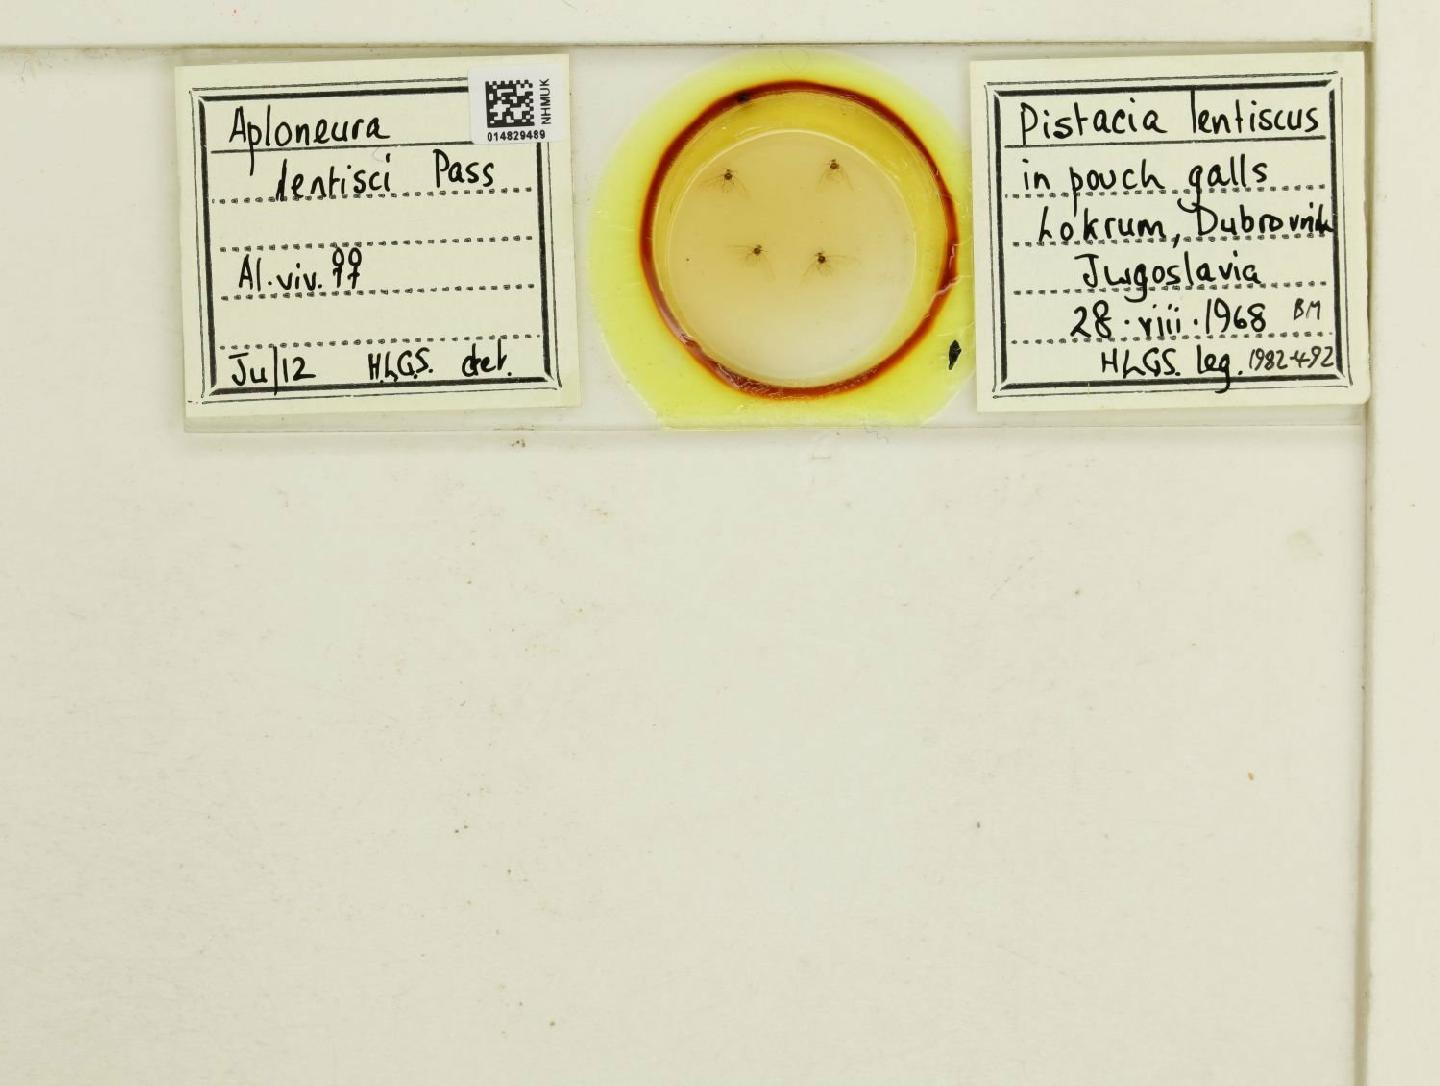 Aploneura
lentisci Pass
Al. viv. ♀♀
Ju/12 H.L.G.S. det.
NHMUK
014829489
Pistacia lentiscus
in pouch galls
Lokrum, Dubrovnik
Jugoslavia
28.viii.1968 BM
HLGS. leg. 1982-492